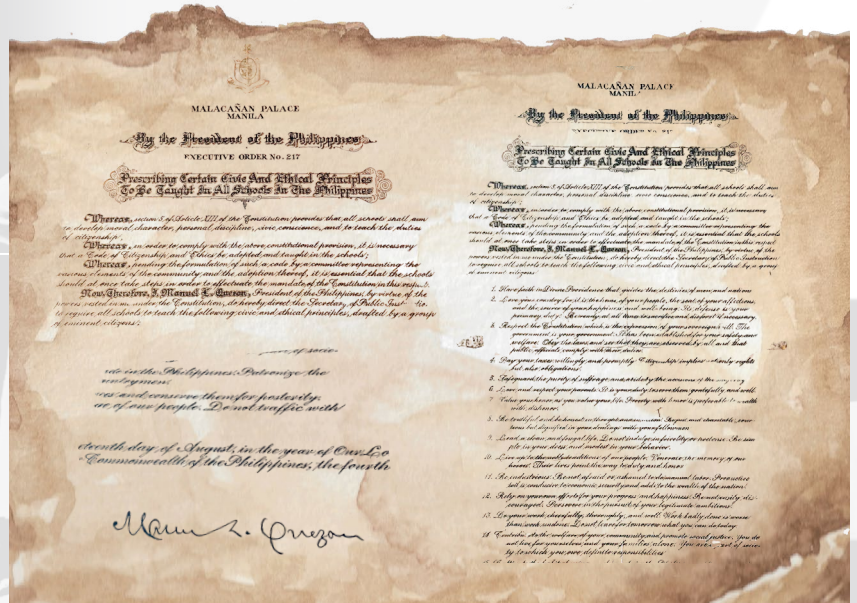 MALACAÑAN PALACE
MANILA
By the President of the Philippines
EXECUTIVE ORDER No. 217
Prescribing Certain Civic And Ethical Principles
To Be Taught In All Schools In The Philippines
Whereas, section 5 of Article XIII of the Constitution provides that all schools shall aim
to develop moral character, personal discipline, civic conscience, and to teach the duties
of citizenship;
Whereas, in order to comply with the above constitutional provision, it is necessary
that a Code of Citizenship and Ethics be adopted and taught in the schools;
Whereas, pending the formulation of such a code by a committee representing the
various elements of the community and the adoption thereof, it is essential that the schools
should at once take steps in order to effectuate the mandate of the Constitution in this respect;
Now, Therefore, I, Manuel L. Quezon, President of the Philippines, by virtue of the
powers vested in me under the Constitution, do hereby direct the Secretary of Public Inst to
to require all schools to teach the following civic and ethical principles, drafted by a group
of eminent citizens:
of socie
in the Philippines. Patronize the
and conserve them for posterity.
of our people. Do not traffic with
day of August, in the year of Our Lo
Commonwealth of the Philippines, the fourth
Manuel L. Quezon
MALACAÑAN PALACE
MANIL
By the President of the Philippines
Prescribing Certain Civic And Ethical Principles
To Be Taught In All Schools In The Philippines
Whereas, section 5 of Article XIII of the Constitution provides that all schools shall aim
to develop moral character, personal discipline, civic conscience, and to teach the duties
of citizenship;
Whereas, in order to comply with the above constitutional provision, it is necessary
that a Code of Citizenship and Ethics be adopted and taught in the schools;
Whereas, pending the formulation of such a code by a committee representing the
various elements of the community and the adoption thereof, it is essential that the schools
should at once take steps in order to effectuate the mandate of the Constitution in this respect
Now, Therefore, I, Manuel L. Quezon, President of the Philippines, by virtue of the
powers vested in me under the Constitution, do hereby direct the Secretary of Public Instruction
to require all schools to teach the following civic and ethical principles, drafted by a group
of eminent citizens
1. Have faith in Divine Providence that guides the destinies of men and nations
2. Love your country for it is the home of your people, the seat of your affections
and the source of your happiness and well-being. Its defense is your
primary duty. Be ready at all times to sacrifice and die for it if necessary
3. Respect the Constitution which is the expression of your sovereign will. The
government is your government. It has been established for your safety and
welfare. Obey the laws and see that they are observed by all and that
public officials comply with their duties
4. Pay your taxes willingly and promptly. Citizenship implies not only rights
but also obligations
5. Safeguard the purity of suffrage and abide by the decisions of the majority
6. Love and respect your parents. It is your duty to serve them gratefully and well
7. Value your honor as you value your life. Poverty with honor is preferable to wealth
with dishonor
8. Be truthful and be honest in thought and in action. Be just and charitable, cour-
teous but dignified in your dealings with your fellowmen
9. Lead a clean and frugal life. Do not indulge in frivolity or pretense. Be sim-
ple in your dress and modest in your behavior.
10. Live up to the noble traditions of our people. Venerate the memory of our
heroes. Their lives point the way to duty and honor
11. Be industrious. Be not afraid or ashamed to do manual labor. Productive
toil is conducive to economic security and adds to the wealth of the nation
12. Rely on your own efforts for your progress and happiness. Be not easily dis-
couraged. Persevere in the pursuit of your legitimate ambitions.
13. Do your work cheerfully, thoroughly, and well. Work badly done is worse
than work undone. Do not leave for tomorrow what you can do today
14 Contribute to the welfare of your community and promote social justice. You do
not live for yourselves and your families alone. You are a part of socie-
ty to which you owe definite responsibilities